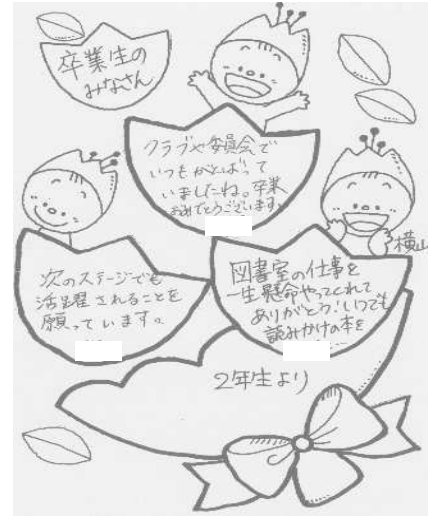 卒業生の
みなさん
クラブや委員会で
いつもがんばって
いましたね。卒業
おめでとうございます。
横山
次のステージでも
活躍されることを
願っています。
図書室の仕事を
一生懸命やってくれて
ありがとう!いつでも
読みかけの本を
2年生より